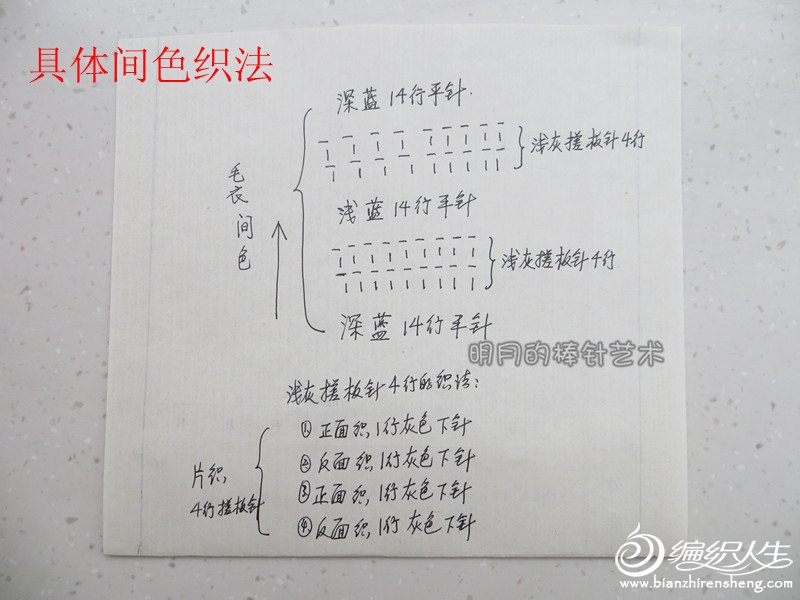 具体间色织法
深蓝14行平针.
浅灰搓板针4行
毛衣间色
浅蓝14行平针
浅灰搓板针4行
深蓝14行平针
明月的棒针艺术
浅灰搓板针4行的织法:
①正面织1行灰色下针
②反面织1行灰色下针
片织
③正面织1行灰色下针
4行搓板针
④反面织1行灰色下针
编织人生
www.bianzhirensheng.com